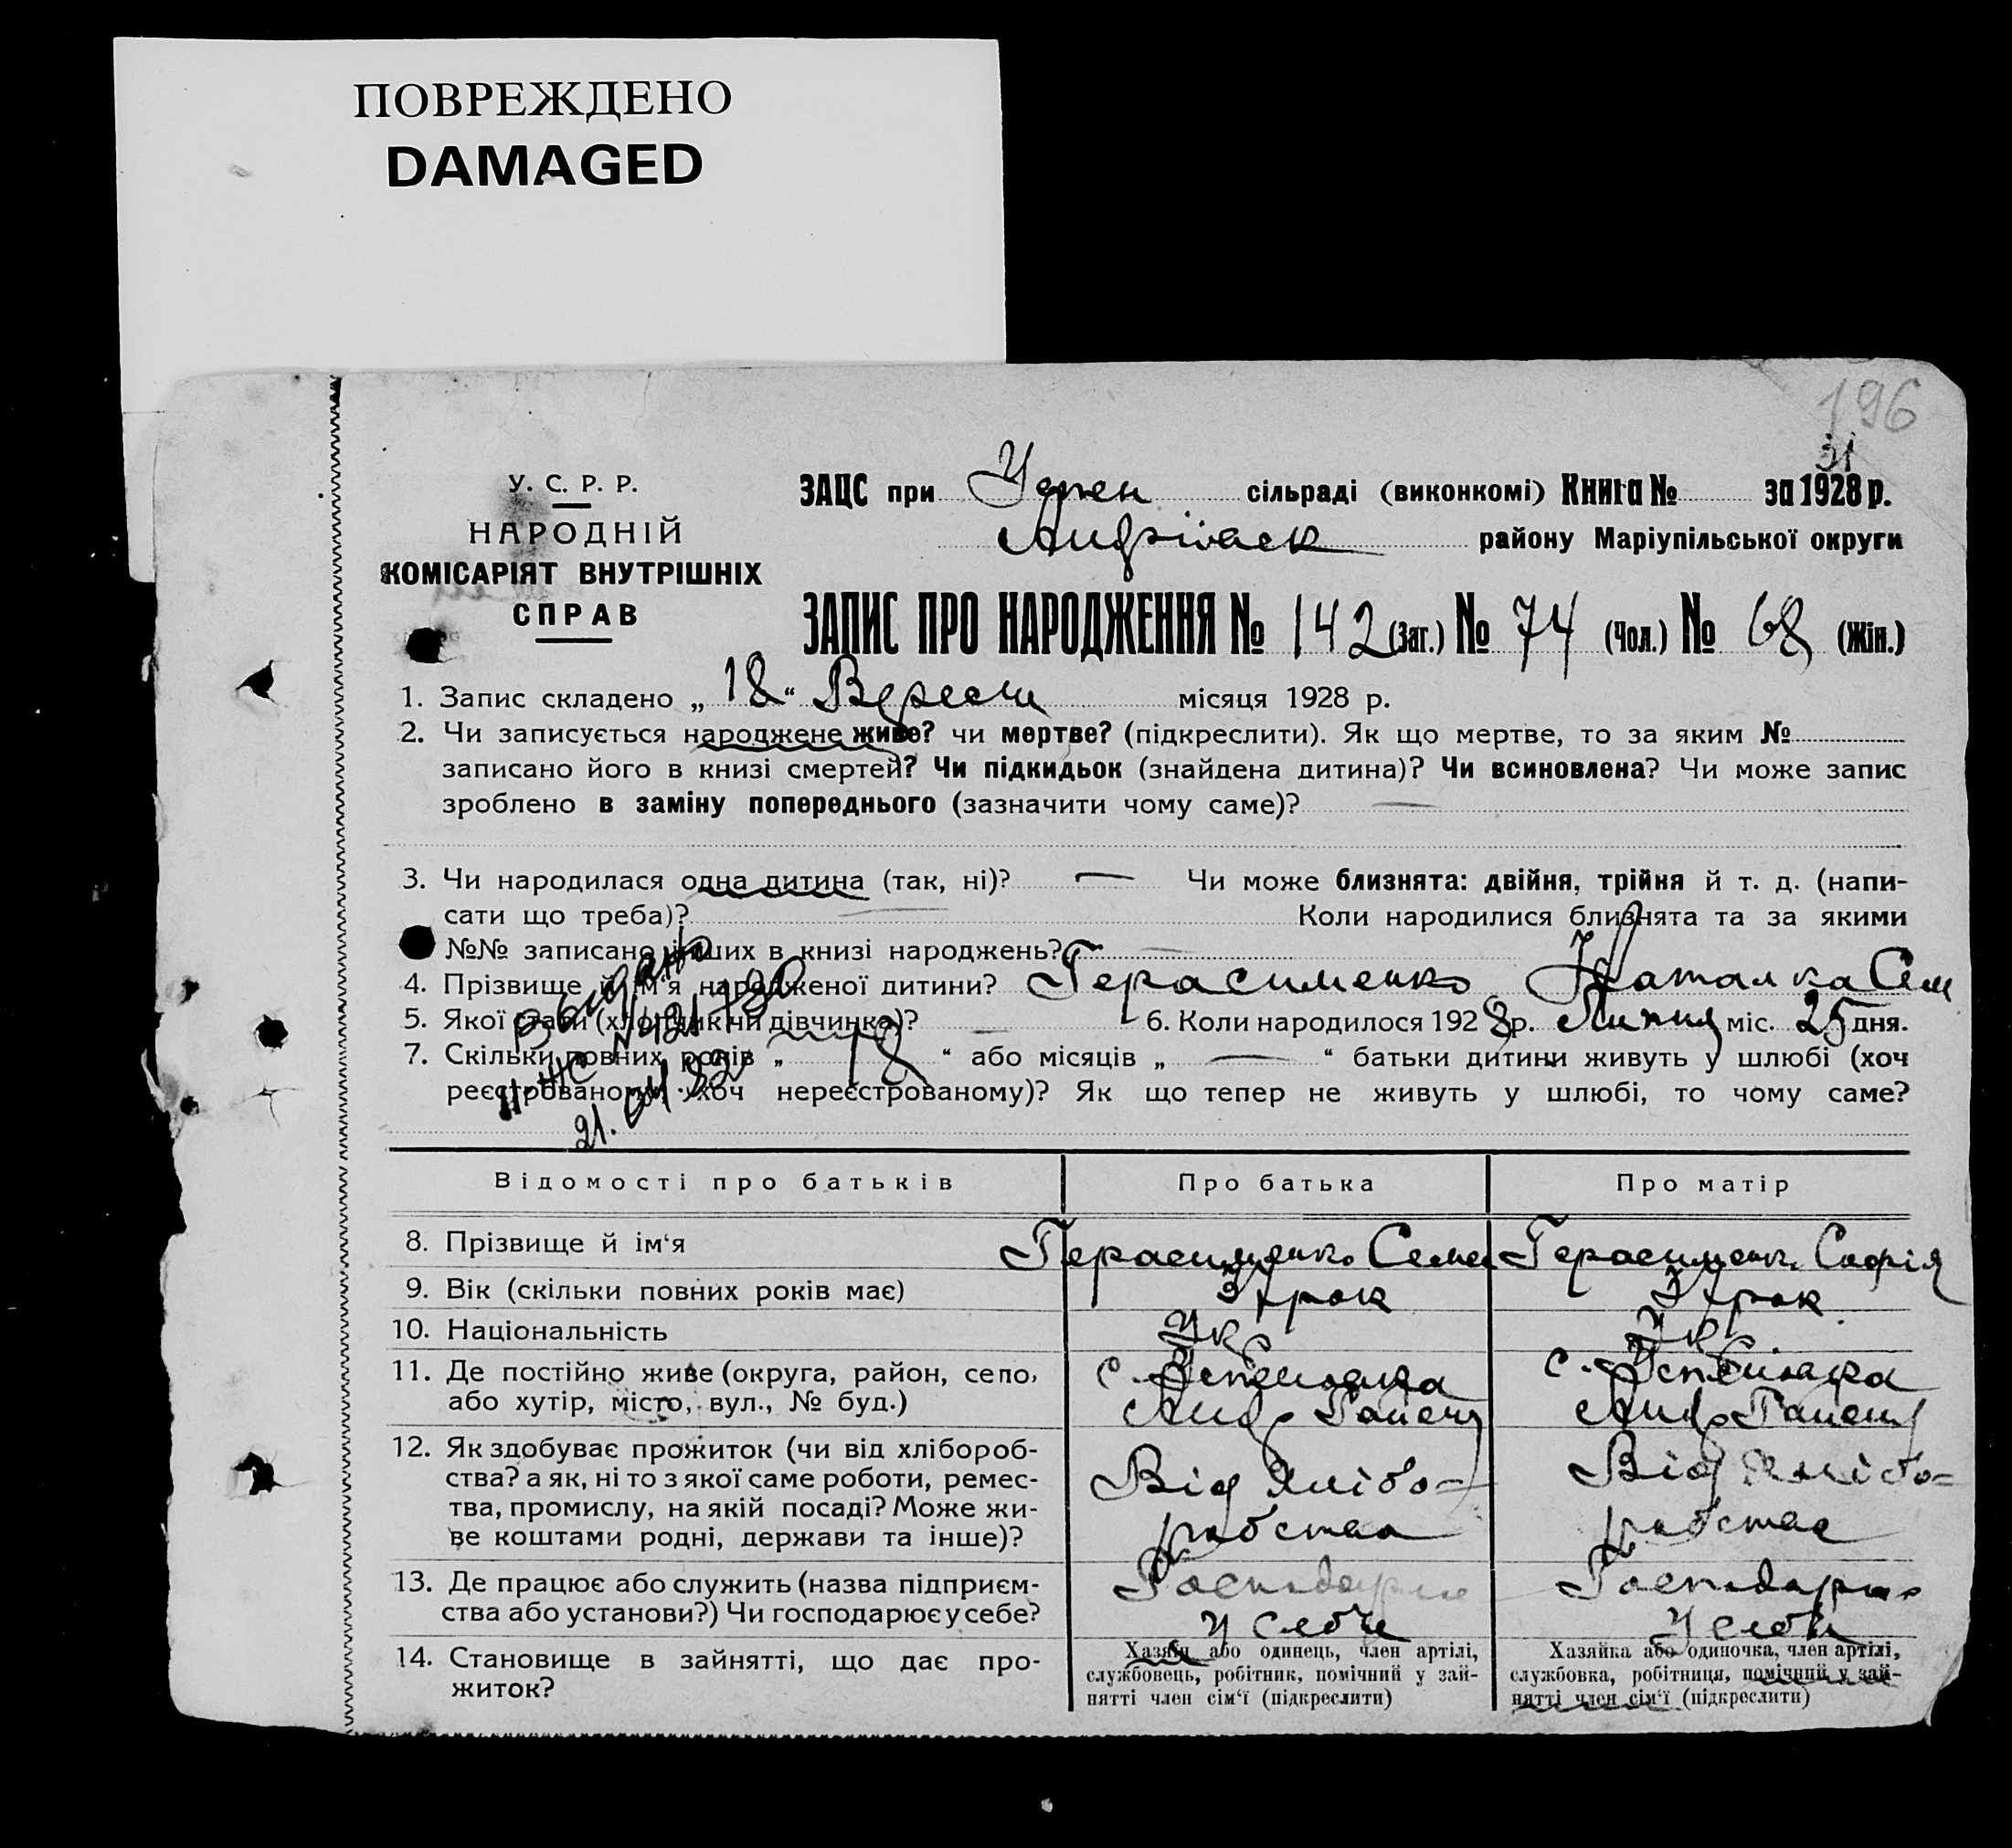 ПОВРЕЖДЕНО
DAMAGED
196
31
У. С. Р. Р.
НАРОДНІЙ
КОМІСАРІЯТ ВНУТРІШНІХ
СПРАВ
ЗАЦС при сільраді (виконкомі) Книга № за 1928 р.
Андріївск району Маріупільської округи
ЗАПИС ПРО НАРОДЖЕННЯ № 142 (Заг.) № 74 (Чол.) № 68 (Жін.)
1. Запис складено „ 18 “ Вересня місяця 1928 р.
2. Чи записується народжене живе? чи мертве? (підкреслити). Як що мертве, то за яким №
записано його в книзі смертей? Чи підкидьок (знайдена дитина)? Чи всиновлена? Чи може запис
зроблено в заміну попереднього (зазначити чому саме)? —
3. Чи народилася одна дитина (так, ні)? — Чи може близнята: двійня, трійня й т. д. (напи-
сати що треба)? — Коли народилися близнята та за якими
№№ записано інших в книзі народжень? —
4. Прізвище й ім‘я народженої дитини? Герасименко Наталка Сем
5. Якої статі (хлопчик чи дівчинка)? 6. Коли народилося 1928 р. Липня міс. 25 дня.
7. Скільки повних років „ 18 “ або місяців „ — “ батьки дитини живуть у шлюбі (хоч
реєстрованому, хоч нереєстрованому)? Як що тепер не живуть у шлюбі, то чому саме?
Відомості про батьків Про батька Про матір
8. Прізвище й ім‘я Герасименко Семен Герасименко Софія
9. Вік (скільки повних років має) 37 рок 37 рок
10. Національність Укр Укр
11. Де постійно живе (округа, район, село,
або хутір, місто, вул., № буд.)
с. Успеновка
Андр Району
с. Успеновка
Андр Району
12. Як здобуває прожиток (чи від хлібороб-
ства? а як, ні то з якої саме роботи, ремес-
тва, промислу, на якій посаді? Може жи-
ве коштами родні, держави та інше)?
Від хлібо-
робства
Від хлібо-
робства
13. Де працює або служить (назва підприєм-
ства або установи?) Чи господарює у себе?
Господарює
у себе
Господарює
у себе
14. Становище в зайнятті, що дає про-
житок?
Хазяїн або одинець, член артілі,
службовець, робітник, помічний у зай-
нятті член сім‘ї (підкреслити)
Хазяйка або одиночка, член артілі,
службовка, робітниця, помічний у зай-
нятті член сім‘ї (підкреслити)